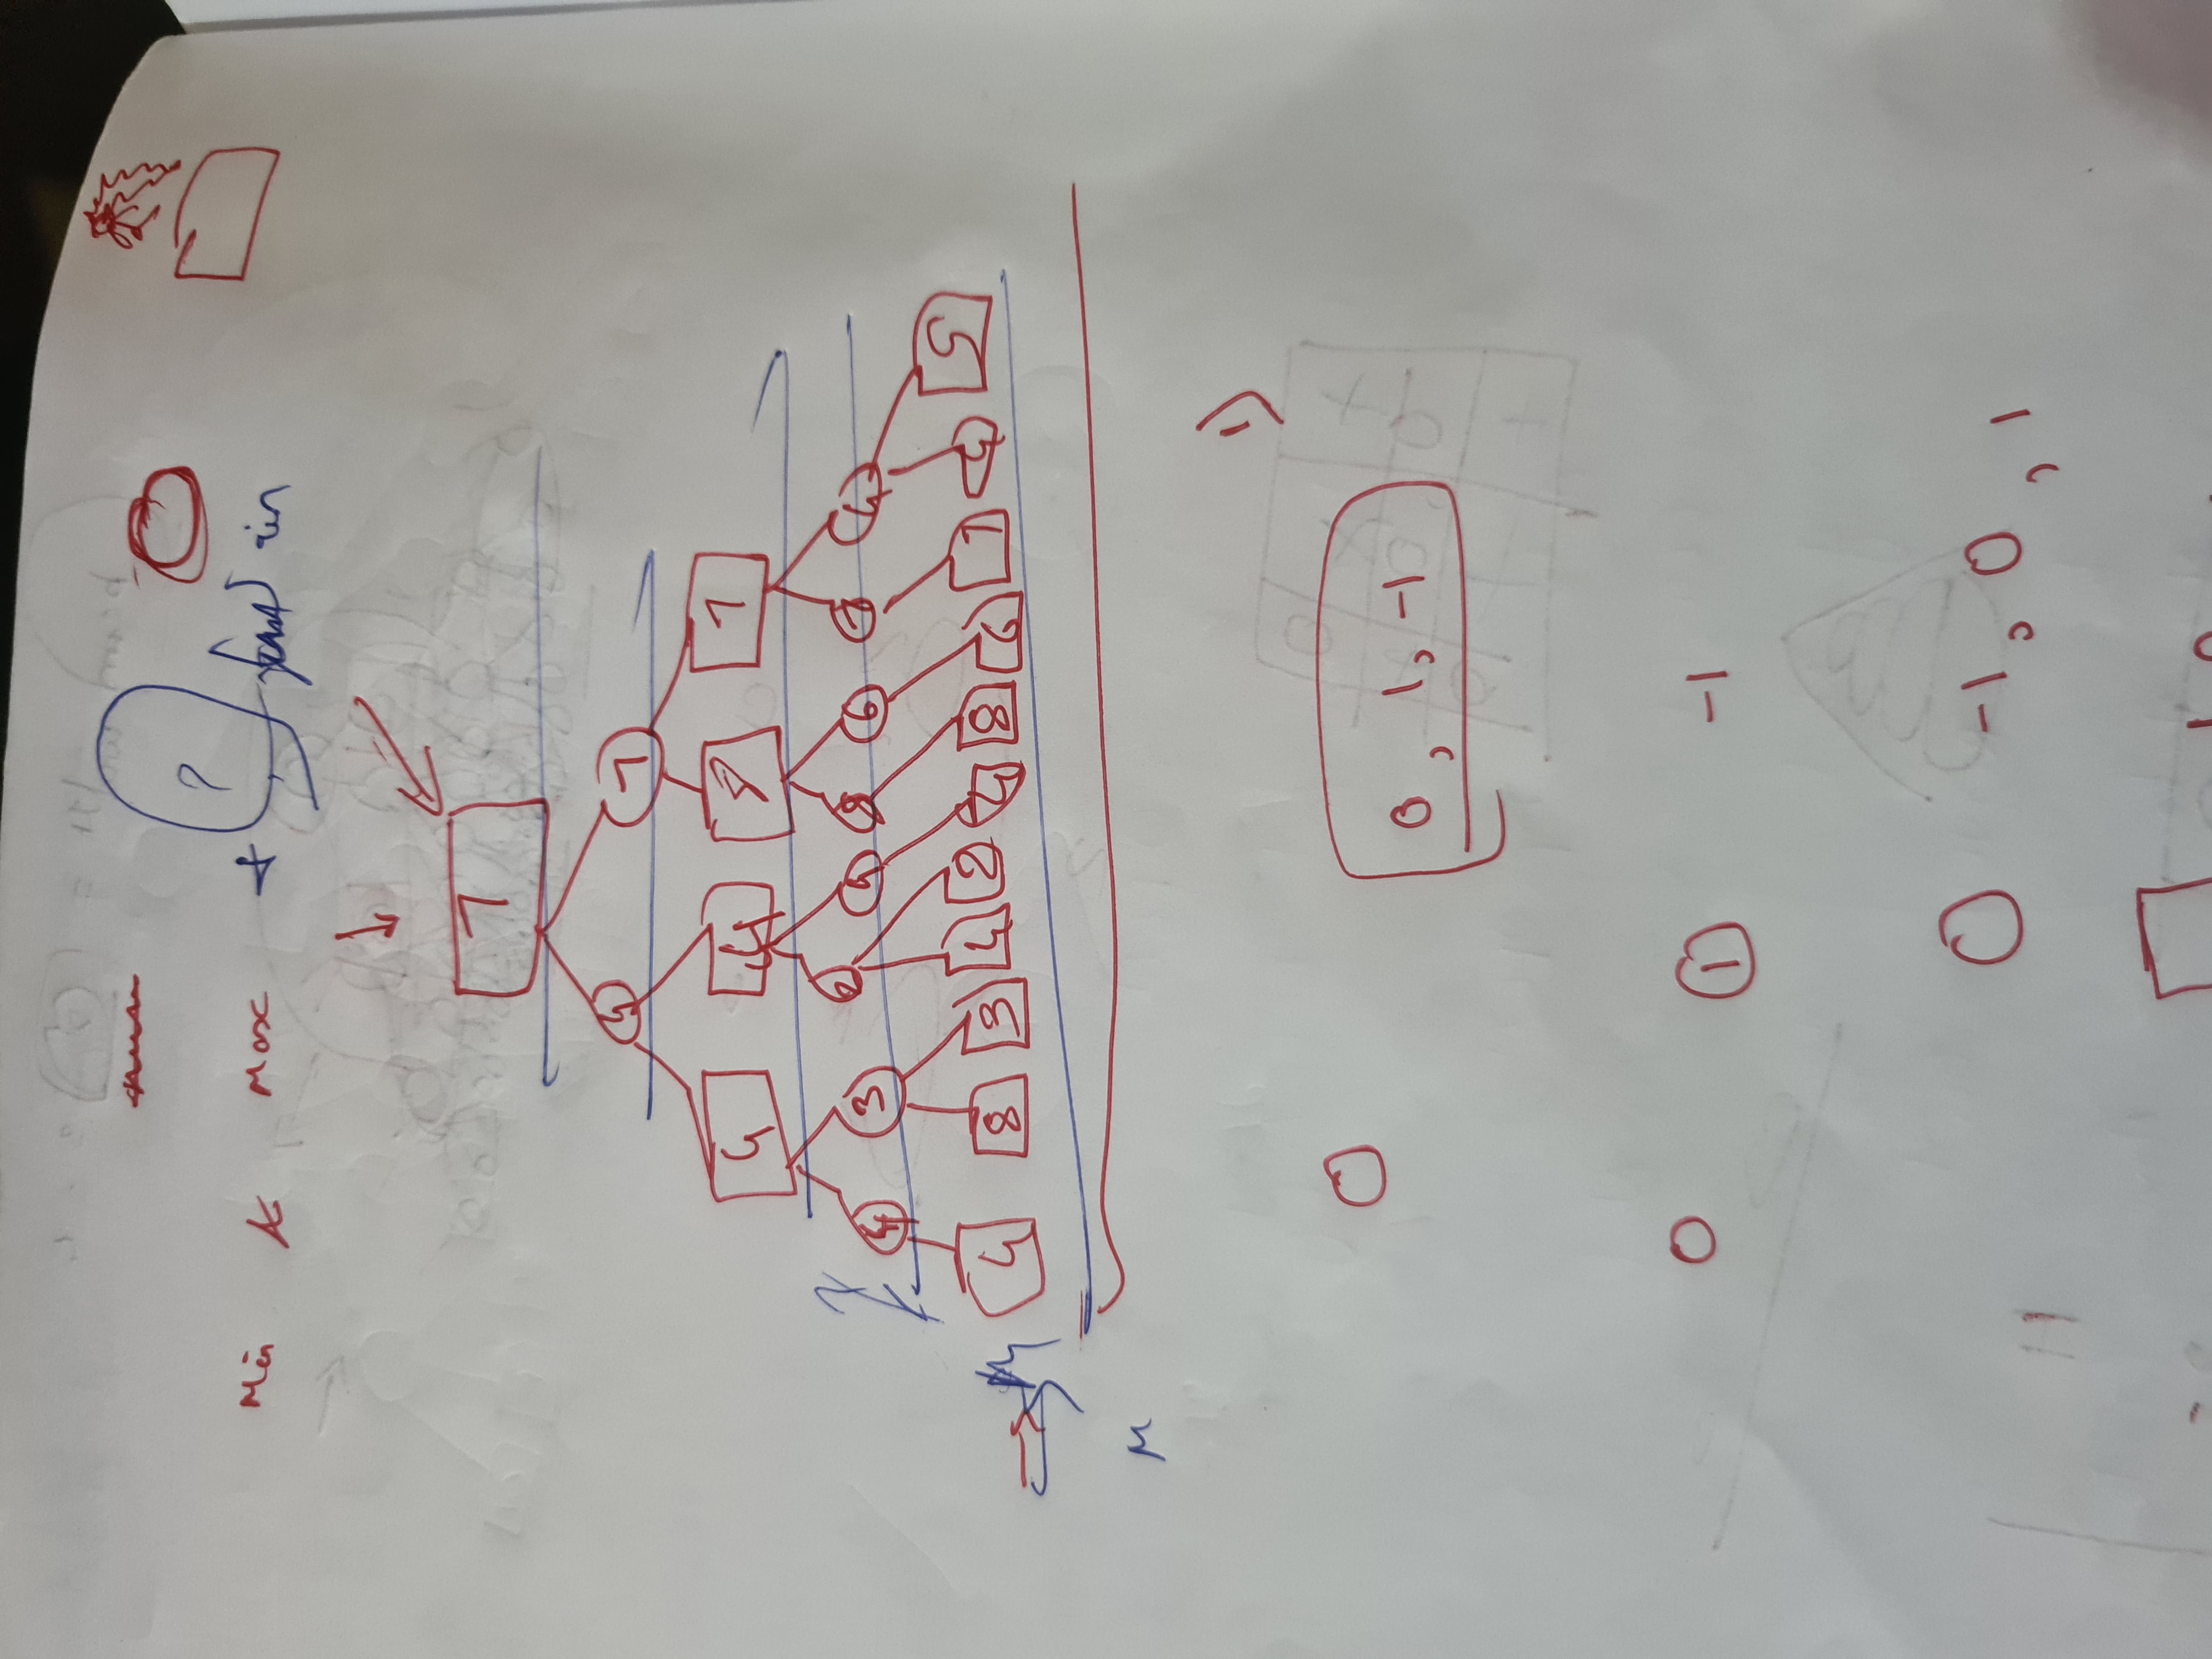 Min & Max + ? in
7
4 7
4 4 8 7
4 3 2 4 8 6 7 4
4 8 3 4 2 4 8 6 7 4 5
M
1)
0
0 , 1, -1
0 1 -1
0 -1, 0 , 1